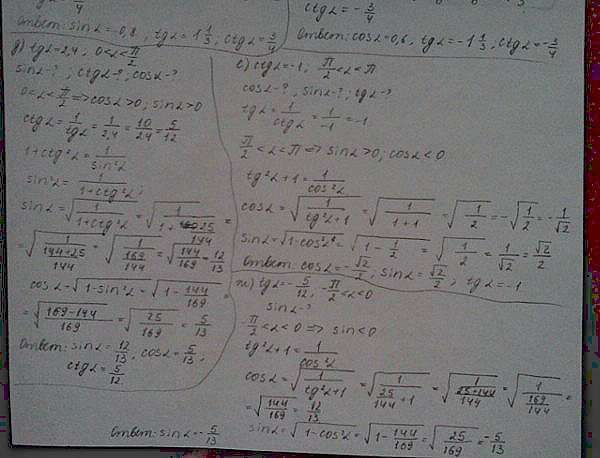 Ответ: sinα = -0,8, tgα = 1 1/3; ctgα = 3/4
д) tgα = 2,4, 0<α<π/2
sinα-?, ctgα-?, cosα-?
0<α<π/2 => cosα>0; sinα>0
ctgα = 1/tgα = 1/2,4 = 10/24 = 5/12
1+ctg²α = 1/sin²α
sin²α = 1/(1+ctg²α);
sinα = √(1/(1+ctg²α)) = √(1/(1+25/144)) =
= √(1/((144+25)/144)) = √(1/(169/144)) = √(144/169) = 12/13
cosα = √(1-sin²α) = √(1-144/169) =
= √((169-144)/169) = √(25/169) = 5/13
Ответ: sinα = 12/13, cosα = 5/13,
ctgα = 5/12
ctgα = -3/4
Ответ: cosα = 0,6, tgα = -1 1/3, ctgα = -3/4
е) ctgα = -1, π/2<α<π
cosα-?, sinα-?; tgα-?
tgα = 1/ctgα = 1/-1 = -1
π/2<α<π => sinα>0; cosα<0
tg²α+1 = 1/cos²α
cosα = √(1/(tg²α+1)) = √(1/(1+1)) = √(1/2) = -√(1/2) = -1/√2
sinα = √(1-cos²α) = √(1-1/2) = √(1/2) = 1/√2 = √2/2
Ответ: cosα = -√2/2, sinα = √2/2, tgα = -1
ж) tgα = -5/12, -π/2<α<0
sinα-?
π/2<α<0 => sin<0
tg²α+1 = 1/cos²α
cosα = √(1/(tg²α+1)) = √(1/(25/144+1)) = √(1/((25+144)/144)) = √(1/(169/144)) =
= √(144/169) = 12/13
sinα = √(1-cos²α) = √(1-144/169) = √(25/169) = -5/13
Ответ: sinα = -5/13